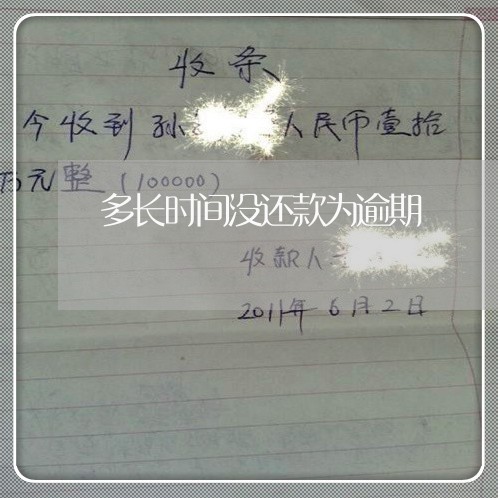 收条
今收到孙 人民币壹拾
万元整(100000)
多长时间没还款为逾期
收款人
2011年6月2日